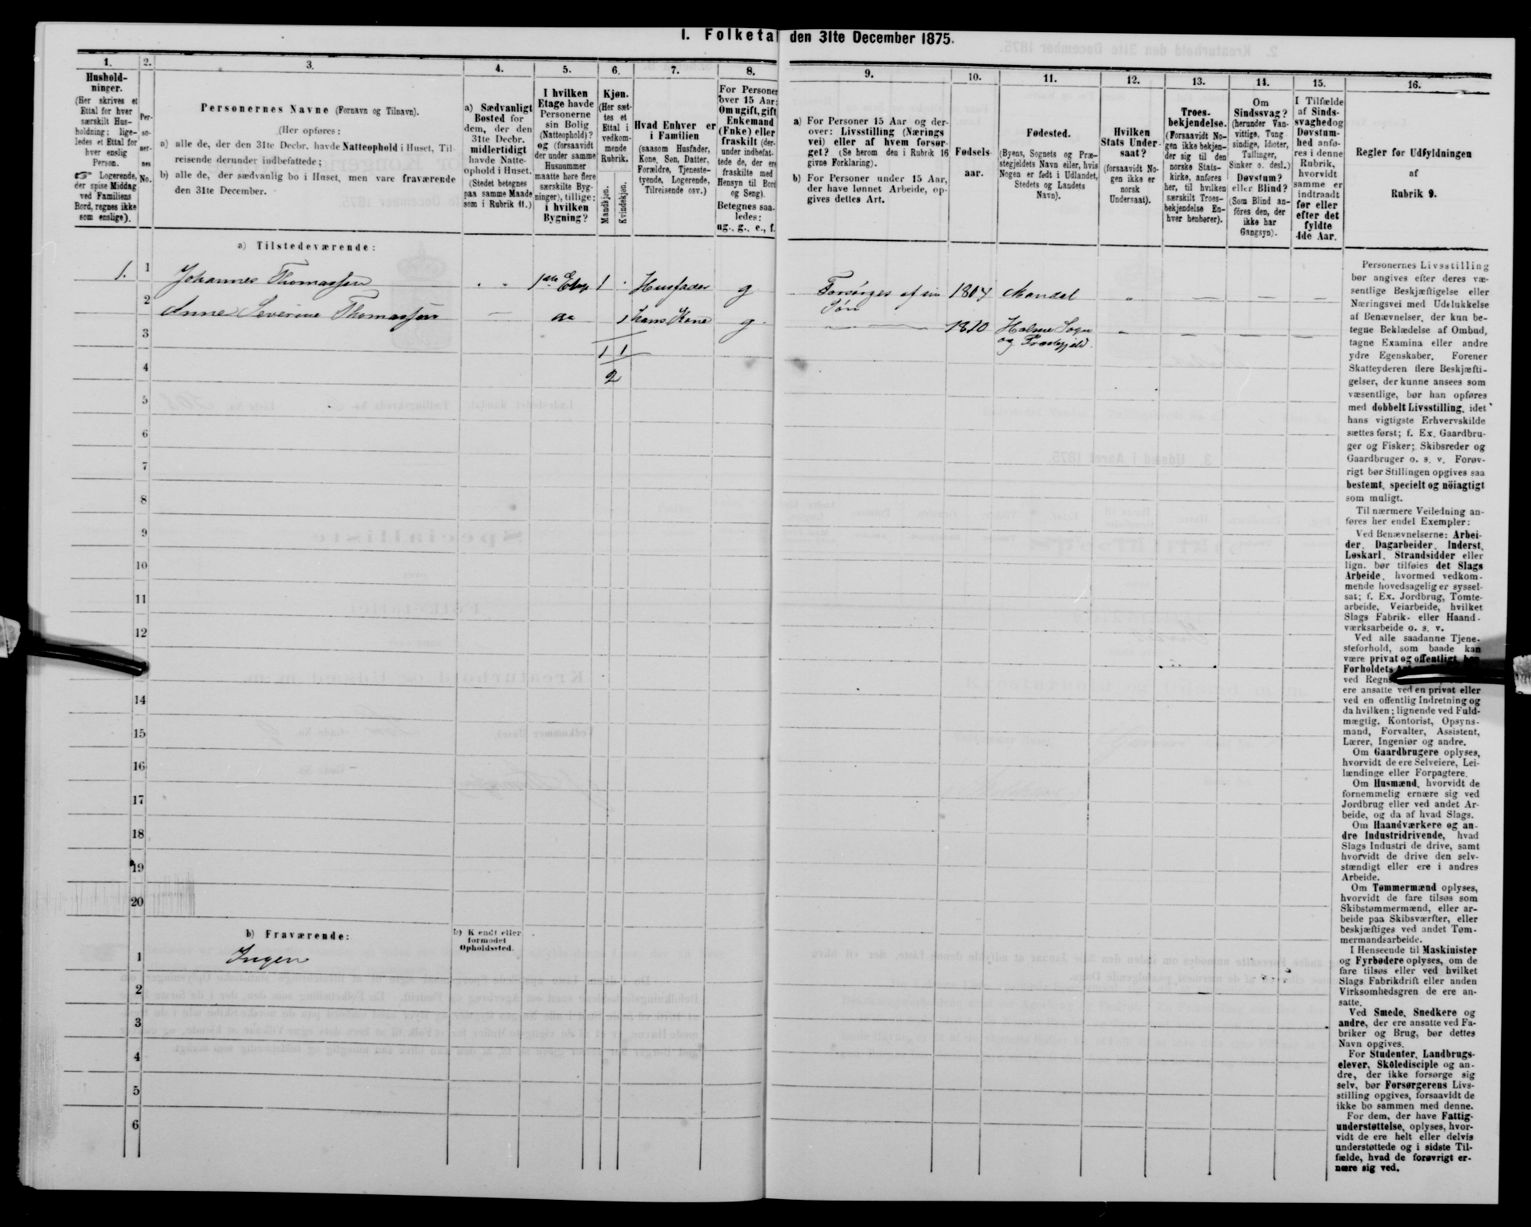 1. Folketal den 31te December 1875.
1.
Hushold-
ninger.
(Her skrives et
Ettal for hver
særskilt Hus-
holdning; lige-
ledes et Ettal for
hver enslig
Person.
☞ Logerende,
der spise Middag
ved Familiens
Bord, regnes ikke
som enslige).
2.
Per-
so-
ner-
nes
No.
3.
Personernes Navne (Fornavn og Tilnavn).
(Her opføres:
a) alle de, der den 31te Decbr. havde Natteophold i Huset, Til-
reisende derunder indbefattede;
b) alle de, der sædvanlig bo i Huset, men vare fraværende
den 31te December.
4.
a) Sædvanligt
Bosted for
dem, der den
31te Decbr.
midlertidigt
havde Natte-
ophold i Huset.
(Stedet betegnes
paa samme Maade
som i Rubrik 11.)
5.
I hvilken
Etage havde
Personerne
sin Bolig
(Natteophold)?
og (forsaavidt
der under samme
Husnummer
maatte høre flere
særskilte Byg-
ninger), tillige:
i hvilken
Bygning?
6.
Kjøn.
(Her sæt-
tes et
Ettal i
vedkom-
mende
Rubrik.
Mandkjøn.
Kvindekjøn.
7.
Hvad Enhver er
i Familien
(saasom Husfader,
Kone, Søn, Datter,
Forældre, Tjeneste-
tyende, Logerende,
Tilreisende osv.)
8.
For Personer
over 15 Aar:
Om ugift, gift
Enkemand
(Enke) eller
fraskilt (der-
under indbefat-
tede de, der ere
fraskilte med
Hensyn til Bord
og Seng).
Betegnes saa-
ledes:
ug., g., e., f.
9.
a) For Personer 15 Aar og der-
over: Livsstilling (Nærings
vei) eller af hvem forsør-
get? (Se herom den i Rubrik 16
givne Forklaring).
b) For Personer under 15 Aar,
der have lønnet Arbeide, op-
gives dettes Art.
10.
Fødsels-
aar.
11.
Fødested.
(Byens, Sognets og Præ-
stegjeldets Navn eller, hvis
Nogen er født i Udlandet,
Stedets og Landets
Navn).
12.
Hvilken
Stats Under-
saat?
(forsaavidt No-
gen ikke er
norsk
Undersaat).
13.
Troes-
bekjendelse.
(Forsaavidt No-
gen ikke bekjen-
der sig til den
norske Stats-
kirke, anføres
her, til hvilken
særskilt Troes-
bekjendelse En-
hver henhører).
14.
Om
Sindssvag?
(herunder Van-
vittige, Tung
sindige, Idioter,
Tullinger,
Sinker o. desl.)
Døvstum?
eller Blind?
(Som Blind an-
føres den, der
ikke har
Gangsyn).
15.
I Tilfælde
af Sinds-
svaghed og
Døvstum-
hed anfø-
res i denne
Rubrik,
hvorvidt
samme er
indtraadt
før eller
efter det
fyldte
4de Aar.
16.
Regler for Udfyldningen
af
Rubrik 9.
a) Tilstedeværende:
1. 1 Johannes Thomassen " " 1ste Etage 1 . Husfader g Forsørges af sin Søn 1804 Mandal
2 Anne Severine Thomassen — 1 hans Kone g. — 1810 Holme Sogn
og Præstegjeld.
3
1 1
4
2
5
6
7
8
9
10
11
12
14
15
16
17
18
19
20
b) Fraværende:
b) Kjendt eller
formodet
Opholdssted.
1 Ingen
2
3
4
5
6
Personernes Livsstilling
bør angives efter deres væ-
sentlige Beskjæftigelse eller
Næringsvei med Udelukkelse
af Benævnelser, der kun be-
tegne Beklædelse af Ombud,
tagne Examina eller andre
ydre Egenskaber. Forener
Skatteyderen flere Beskjæfti-
gelser, der kunne ansees som
væsentlige, bør han opføres
med dobbelt Livsstilling, idet
hans vigtigste Erhvervskilde
sættes først; f. Ex. Gaardbru-
ger og Fisker; Skibsreder og
Gaardbruger o. s. v. Forøv-
rigt bør Stillingen opgives saa
bestemt, specielt og nöiagtigt
som muligt.
Til nærmere Veiledning an-
føres her endel Exempler:
Ved Benævnelserne: Arbei-
der, Dagarbeider, Inderst,
Løskarl, Strandsidder eller
lign. bør tilføies det Slags
Arbeide, hvormed vedkom-
mende hovedsagelig er syssel-
sat; f. Ex. Jordbrug, Tomte-
arbeide, Veiarbeide, hvilket
Slags Fabrik- eller Haand-
værksarbeide o. s. v.
Ved alle saadanne Tjene-
steforhold, som baade kan
være privat og offentligt, bør
Forholdets
ved Regn
ere ansatte ved en privat eller
ved en offentlig Indretning og
da hvilken; lignende ved Fuld-
mægtig, Kontorist, Opsyns-
mand, Forvalter, Assistent,
Lærer, Ingeniør og andre.
Om Gaardbrugere oplyses,
hvorvidt de ere Selveiere, Lei-
lændinge eller Forpagtere.
Om Husmænd, hvorvidt de
fornemmelig ernære sig ved
Jordbrug eller ved andet Ar-
beide, og da af hvad Slags.
Om Haandværkere og an-
dre Industridrivende, hvad
Slags Industri de drive, samt
hvorvidt de drive den selv-
stændigt eller ere i andres
Arbeide.
Om Tømmermænd oplyses,
hvorvidt de fare tilsøs som
Skibstømmermænd, eller ar-
beide paa Skibsværfter, eller
beskjæftiges ved andet Tøm-
mermandsarbeide.
I Henseende til Maskinister
og Fyrbødere oplyses, om de
fare tilsøs eller ved hvilket
Slags Fabrikdrift eller anden
Virksomhedsgren de ere an-
satte.
Ved Smede, Snedkere og
andre, der ere ansatte ved Fa-
briker og Brug, bør dettes
Navn opgives.
For Studenter, Landbrugs-
elever, Skoledisciple og an-
dre, der ikke forsørge sig
selv, bør Forsørgerens Livs-
stilling opgives, forsaavidt de
ikke bo sammen med denne.
For dem, der have Fattig-
understøttelse, oplyses, hvor-
vidt de ere helt eller delvis
understøttede og i sidste Til-
fælde, hvad de forøvrigt er-
nære sig ved.